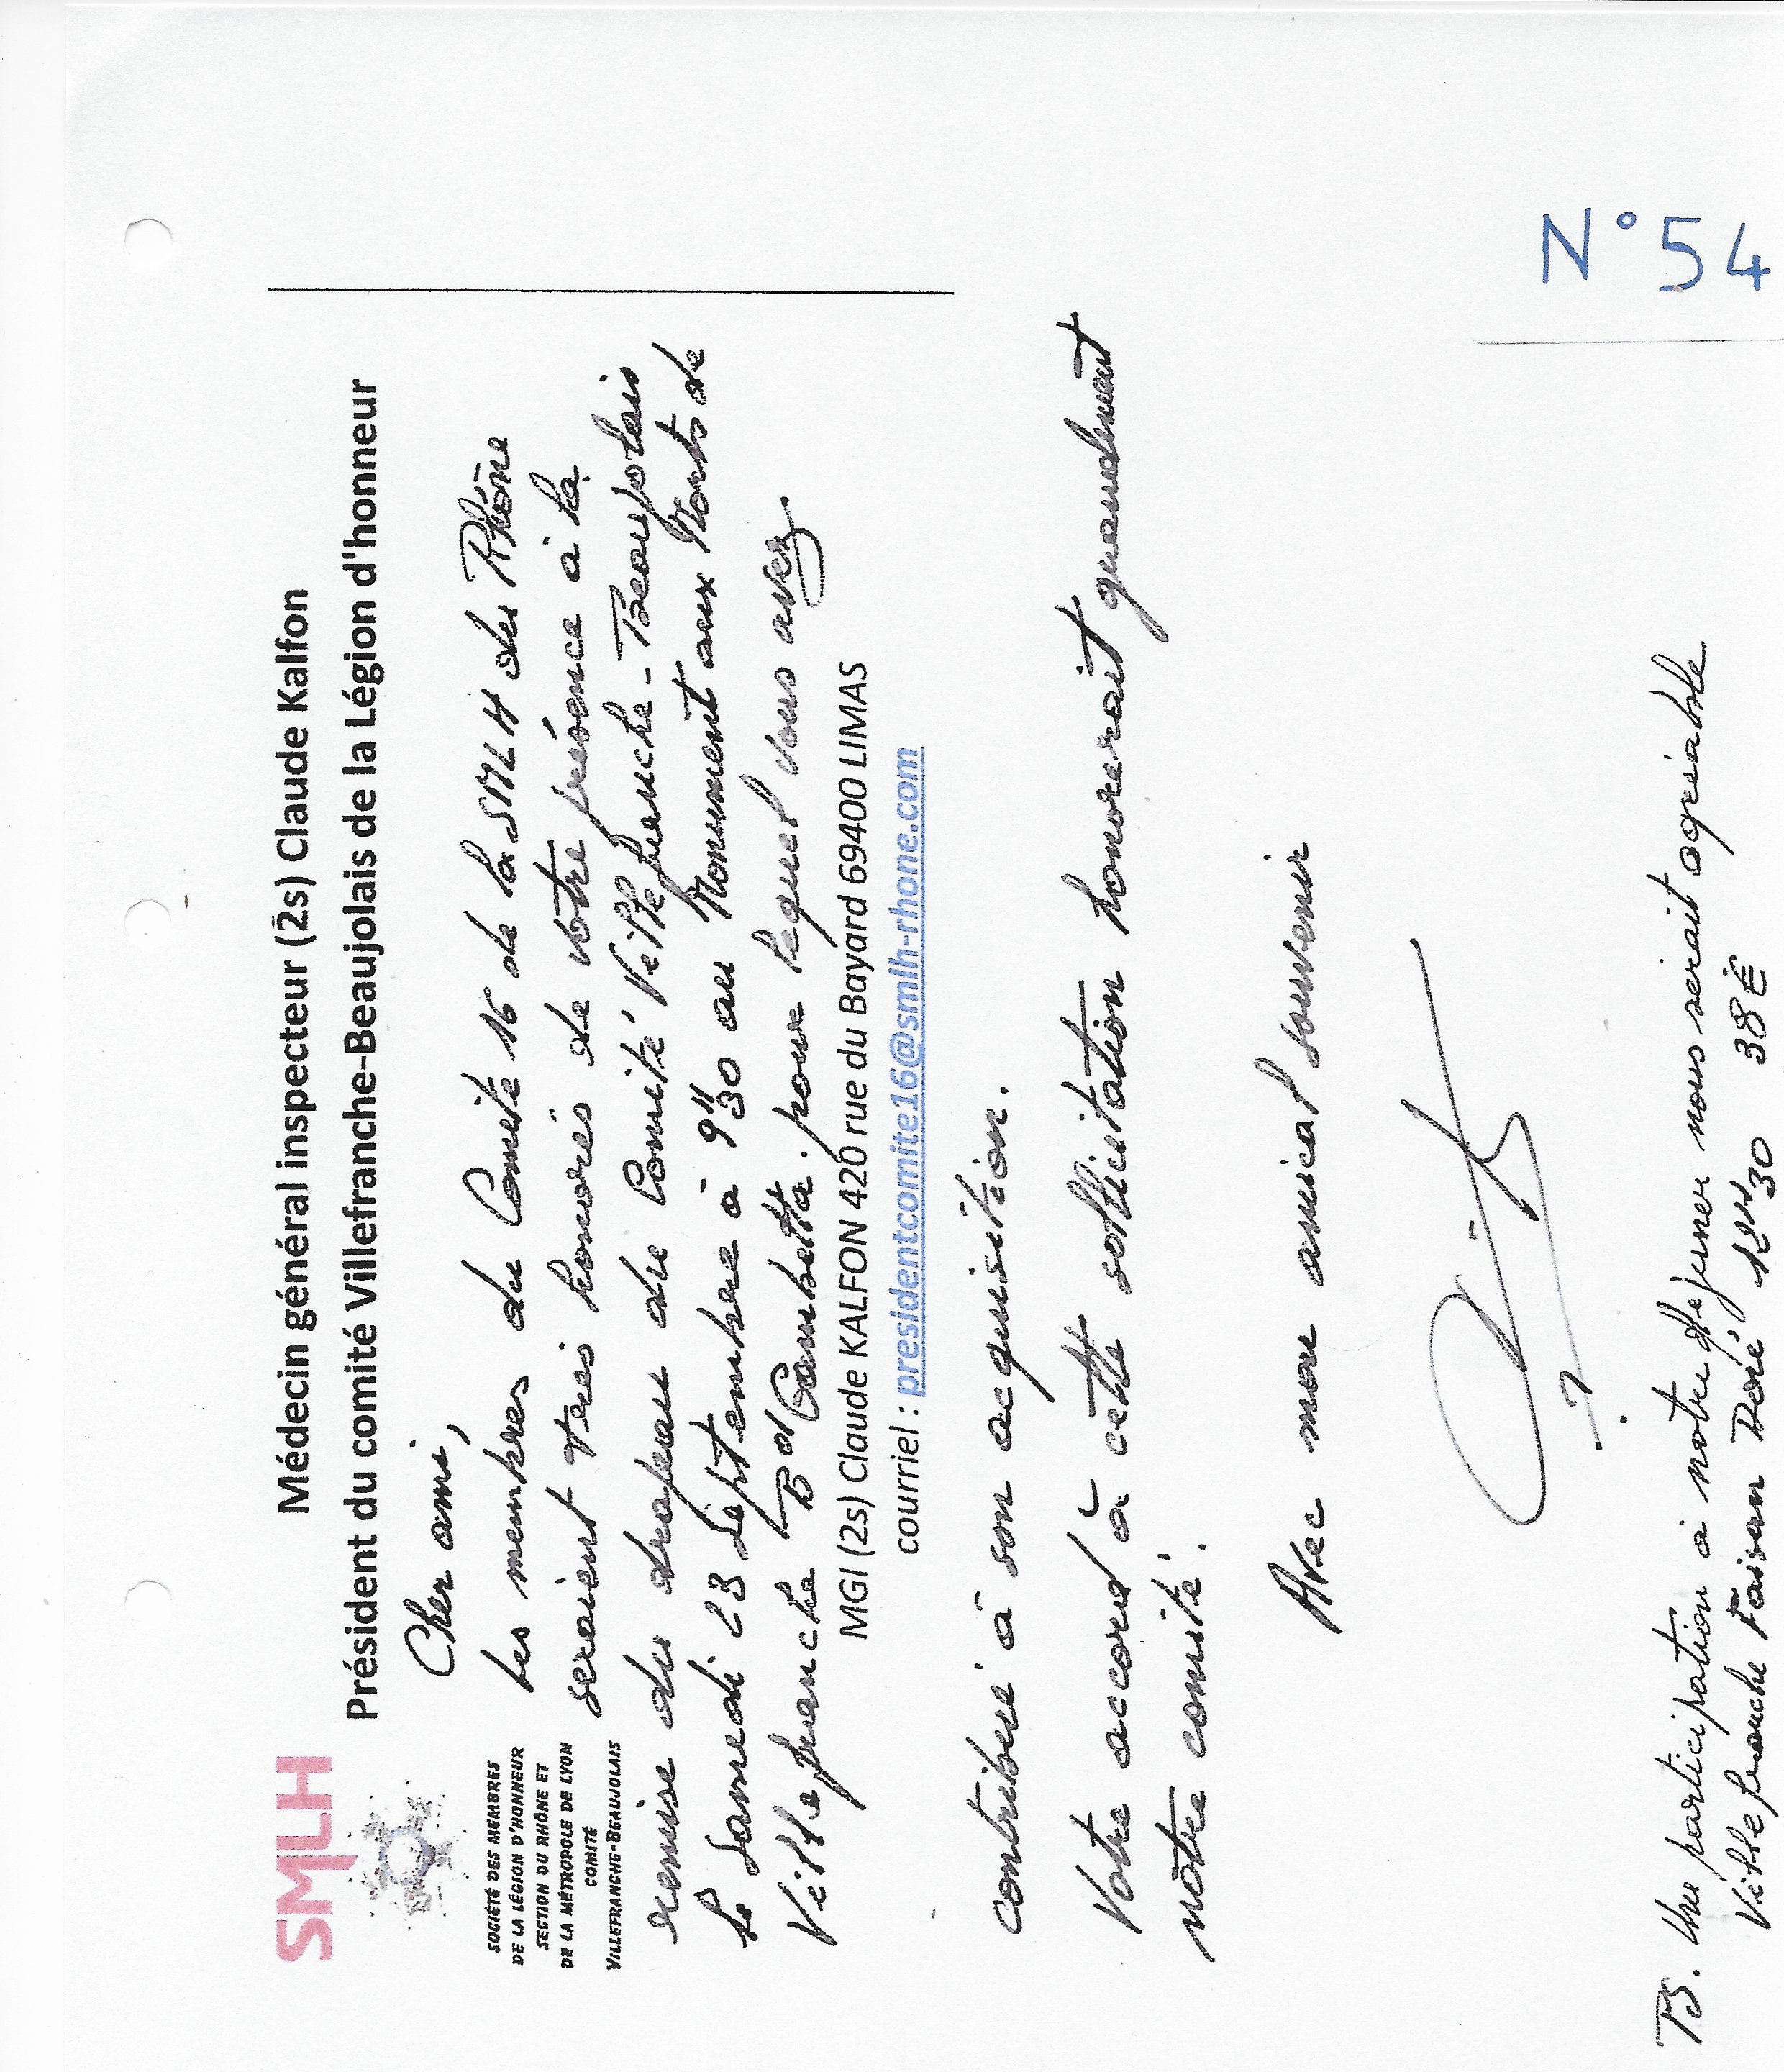 SMLH
SOCIÉTÉ DES MEMBRES
DE LA LÉGION D'HONNEUR
SECTION DU RHÔNE ET
DE LA MÉTROPOLE DE LYON
COMITÉ
VILLEFRANCHE-BEAUJOLAIS
Médecin général inspecteur (2s) Claude Kalfon
Président du comité Villefranche-Beaujolais de la Légion d'honneur
Cher ami,
Les membres du Comité 16 de la SMLH du Rhône
seraient très honorés de votre présence à la
remise du drapeau du Comité Villefranche-Beaujolais
le samedi 23 septembre à 9H30 au Monument aux Morts de
Villefranche Bd Gambetta. pour lequel vous avez
MGI (2s) Claude KALFON 420 rue du Bayard 69400 LIMAS
courriel : presidentcomite16@smlh-rhone.com
contribué à son acquisition.
Votre accord à cette sollicitation honorerait grandement
notre comité.
Avec mon amical souvenir
N° 54
Une participation à notre déjeuner nous serait agréable
Villefranche Faisan Doré, 12H30 38€